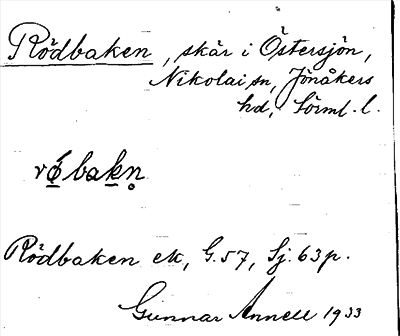 Rödbaken, skär i Östersjön,
Nikolai sn, Jönåkers
hd, Sörml. l.
rǿbakn̥
Rödbaken ek, G. 57, Sj. 63 p.
Gunnar Annell 1933